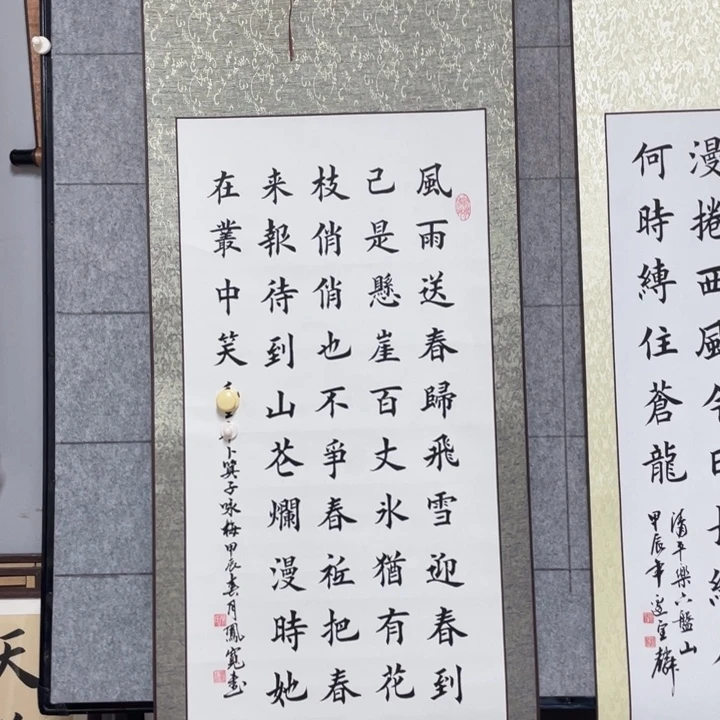 漫捲西風今日長
何時縛住蒼龍
清平樂六盤山
甲辰年
風雨送春歸飛雪迎春到
己是懸崖百丈冰猶有花
枝俏俏也不爭春祗把春
来報待到山芲爛漫時她
在叢中笑
卜筭子咏梅甲辰春月鳳寬書
天